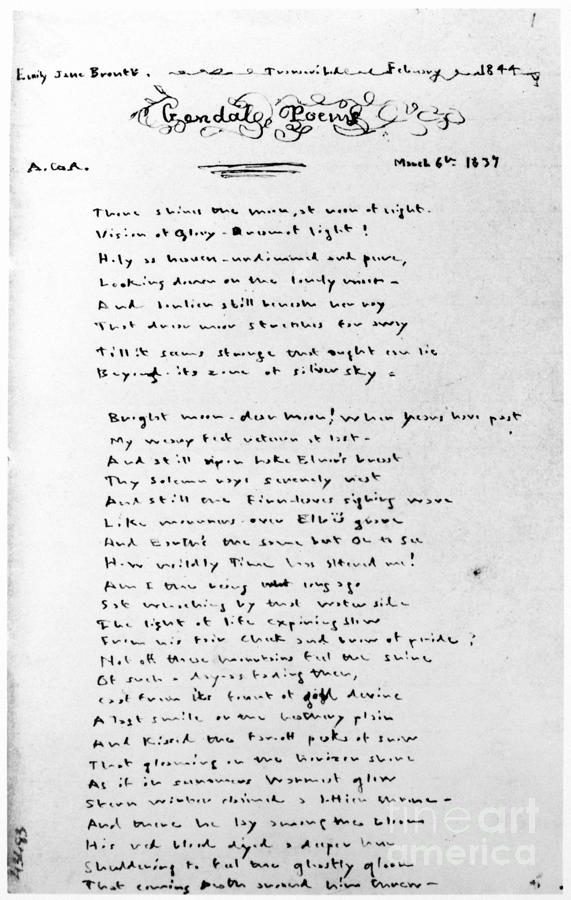 1
Emily Jane Brontë. Transcribed February 1844
Gondal Poems
A.G.A. March 6th 1837
There shines the moon, at noon of night.
Vision of Glory - Dream of light!
Holy as heaven - undimmed and pure,
Looking down on the lonely moor -
And lonlier still beneath her ray
That drear moor stretches far away
Till it seems strange that aught can lie
Beyond its zone of silver sky -
Bright moon - dear moon! when years have past
My weary feet return at last -
And still upon Lake Elnor's breast
Thy solemn rays serenely rest
And still the Fern-leaves sighing wave
Like mourners over Elbë's grave
And Earth's the same but Oh to see
How wildly Time has altered me!
Am I the being who long ago
Sat watching by that water side
The light of life expiring slow
From his fair cheek and brow of pride?
Not oft these mountains feel the shine
Of such a day - as fading then,
Cast from its fount of gold devine
A last smile on the heathery plain
And kissed the far-off peaks of snow
That gleaming on the horizon shone
As if in summer's warmest glow
Stern winter claimed a loftier throne -
And there he lay among the bloom
His red blood dyed a deeper hue
Shuddering to feel the ghostly gloom
That coming Death around him threw -
43683
fineart
america